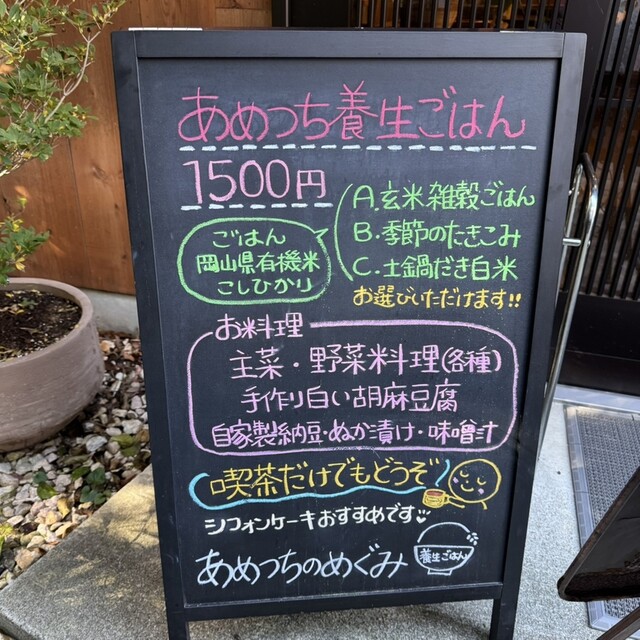 あめつち養生ごはん
1500円
A.玄米雑穀ごはん
B.季節のたきこみ
C.土鍋だき白米
お選びいただけます!!
ごはん
岡山県有機米
こしひかり
お料理
主菜・野菜料理(各種)
手作り白い胡麻豆腐
自家製納豆・ぬか漬け・味噌汁
喫茶だけでもどうぞ
シフォンケーキおすすめです
あめつちのめぐみ
養生ごはん